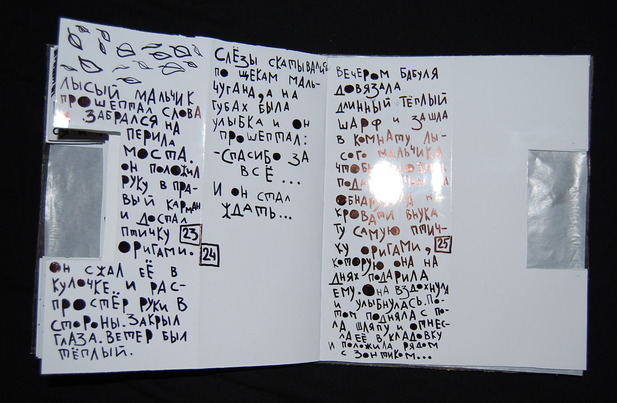 ЛЫСЫЙ МАЛЬЧИК
ПРОШЕПТАЛ СЛОВА
И ЗАБРАЛСЯ НА
ПЕРИЛА
МОСТА.
ОН ПОЛОЖИЛ
РУКУ В ПРА-
ВЫЙ КАРМАН
И ДОСТАЛ
ПТИЧКУ 23
ОРИГАМИ.
ОН СЖАЛ ЕЁ В
КУЛОЧКЕ. И РАС-
ПРОСТЁР РУКИ В
СТОРОНЫ. ЗАКРЫЛ
ГЛАЗА. ВЕТЕР БЫЛ
ТЁПЛЫЙ.
24
СЛЁЗЫ СКАТЫВАЛИСЬ
ПО ЩЕКАМ МАЛЬ-
ЧУГАНА, А НА
ГУБАХ БЫЛА
УЛЫБКА И ОН
ПРОШЕПТАЛ:
-СПАСИБО ЗА
ВСЁ...
И ОН СТАЛ
ЖДАТЬ...
ВЕЧЕРОМ БАБУЛЯ
ДОВЯЗАЛА
ДЛИННЫЙ ТЁПЛЫЙ
ШАРФ И ЗАШЛА
В КОМНАТУ ЛЫ-
СОГО МАЛЬЧИКА
ЧТОБЫ
ПОДА
ОБНАРУЖИЛА НА
КРОВАТИ ВНУКА
ТУ САМУЮ ПТИЧ-
КУ ОРИГАМИ, 25
КОТОРУЮ ОНА НА
ДНЯХ ПОДАРИЛА
ЕМУ. ОНА ВЗДОХНУЛА
И УЛЫБНУЛАСЬ. ПО-
ТОМ ПОДНЯЛА С ПО-
ЛА ШЛЯПУ И ОТНЕС-
ЛА ЕЁ В КЛАДОВКУ
И ПОЛОЖИЛА РЯДОМ
С ЗОНТИКОМ...